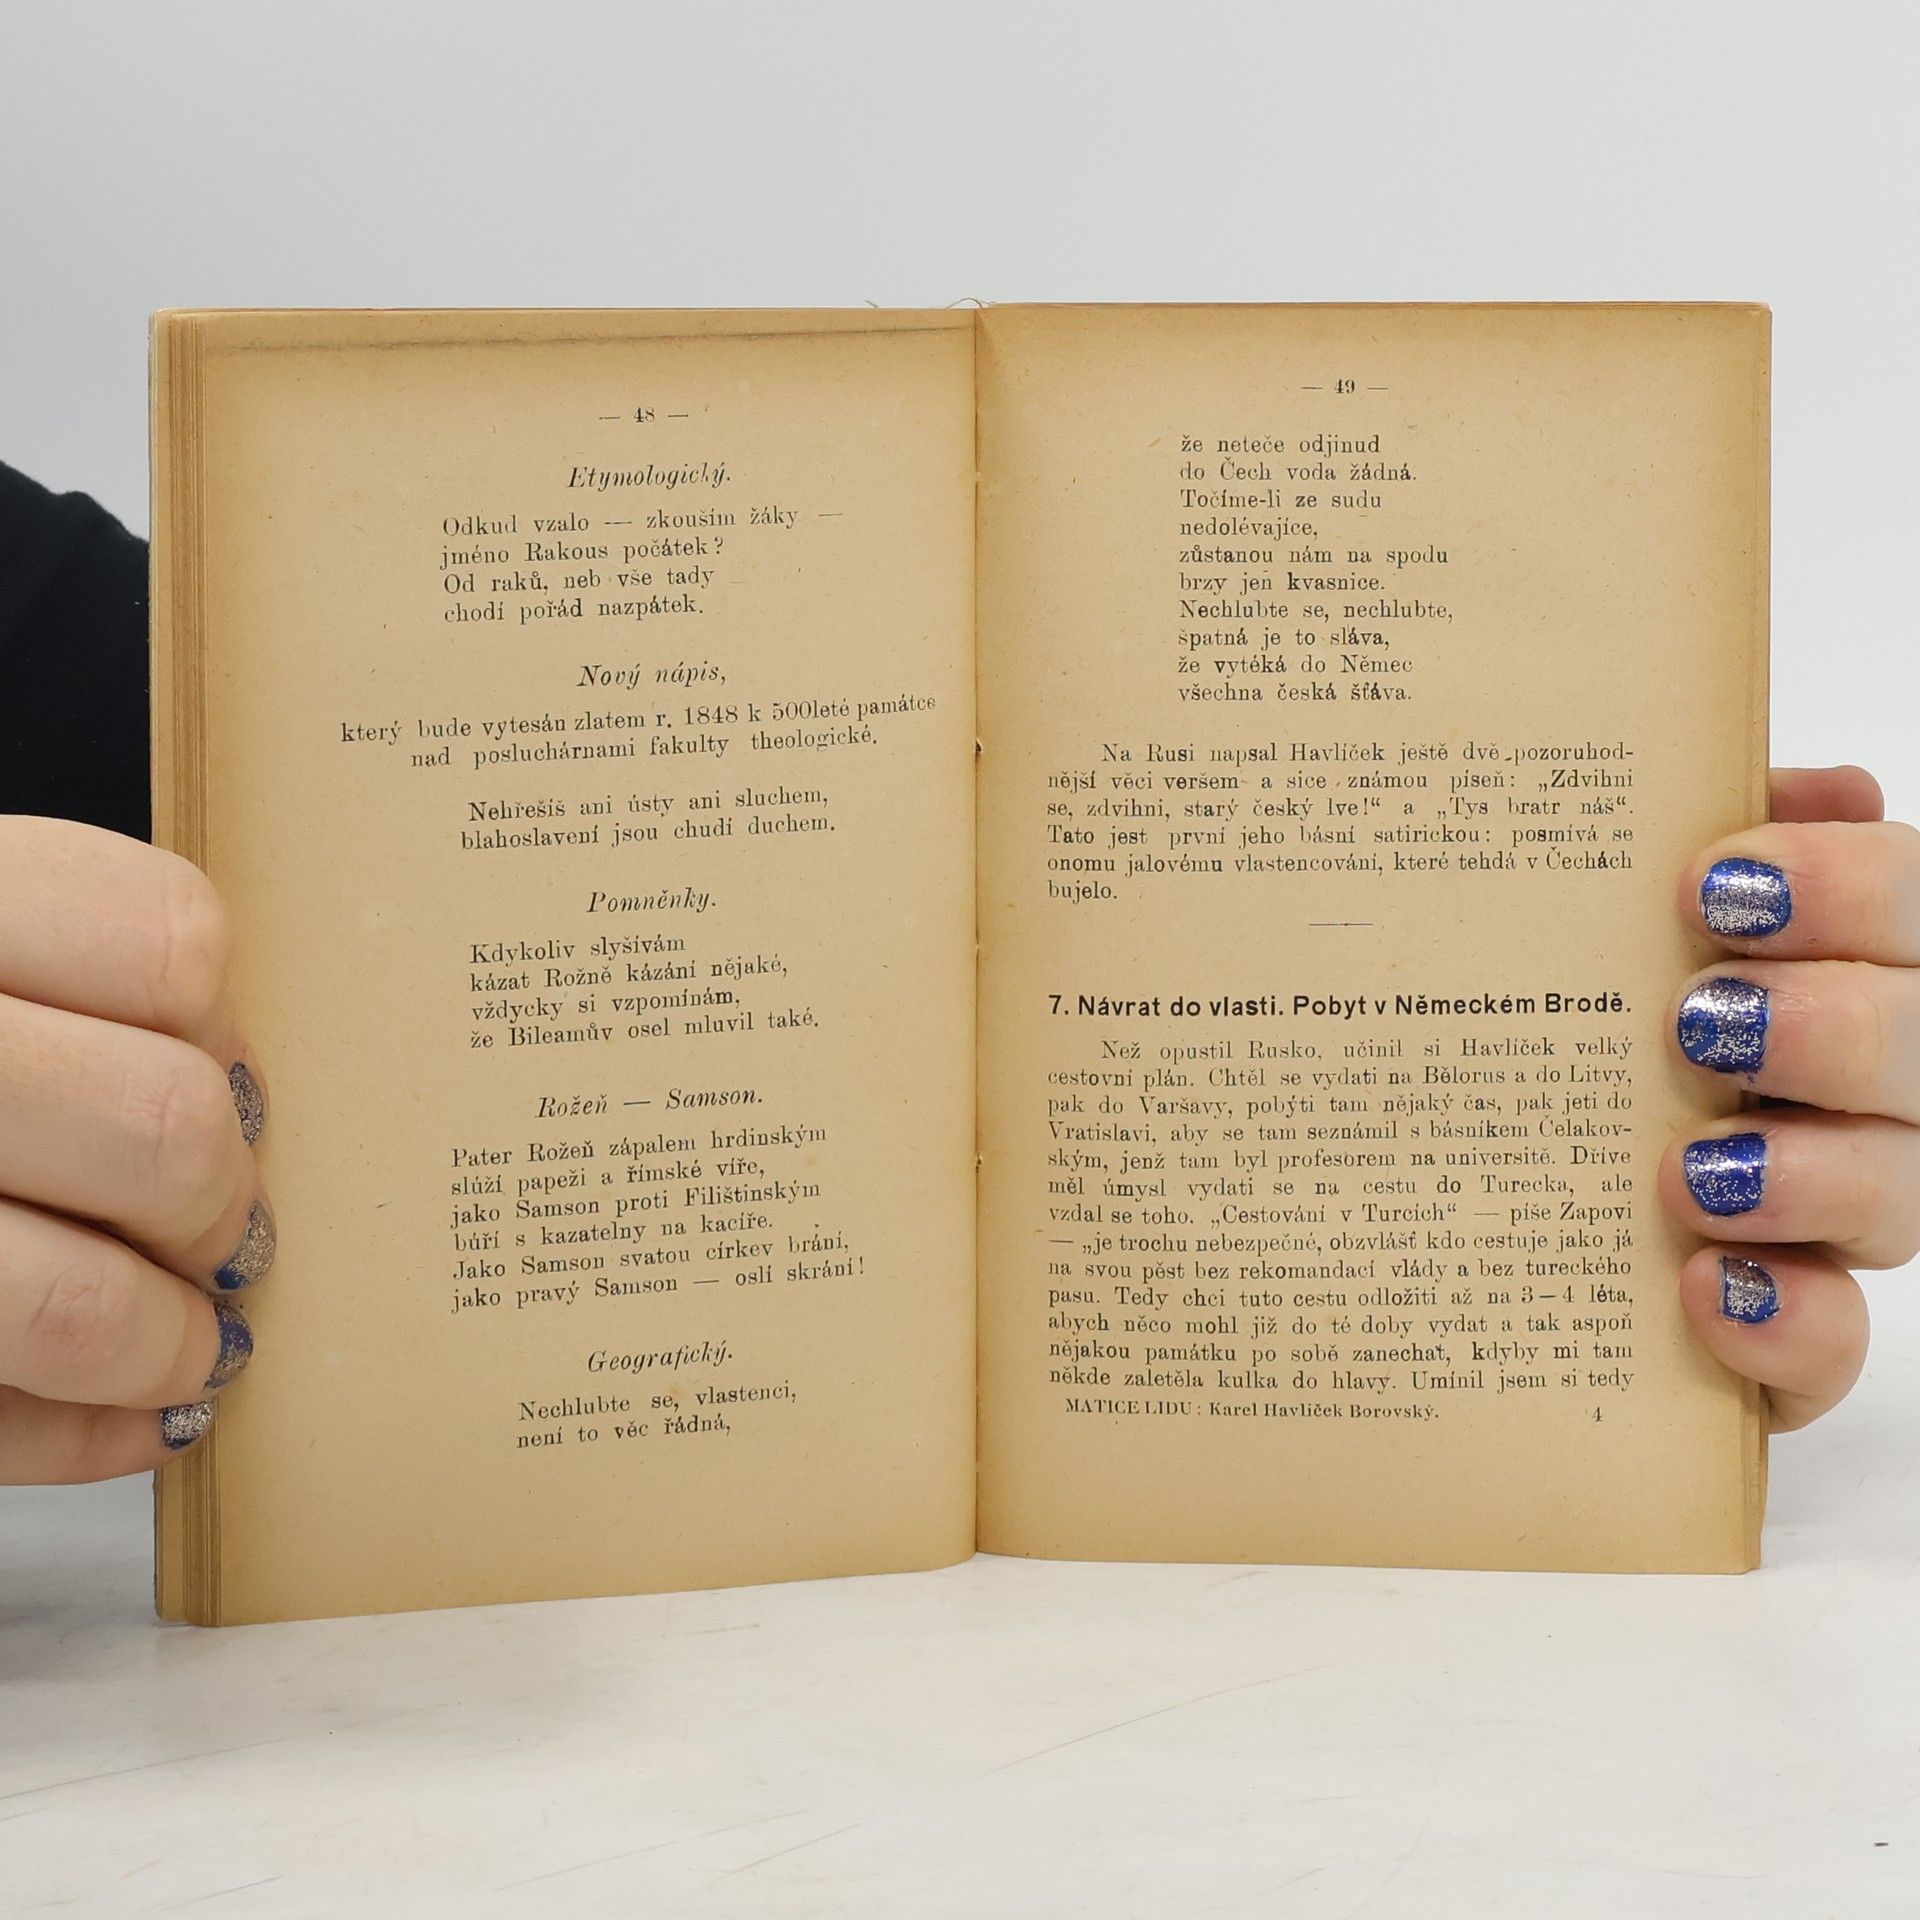 — 48 —
Etymologický.
Odkud vzalo — zkouším žáky —
jméno Rakous počátek?
Od raků, neb vše tady
chodí pořád nazpátek.
Nový nápis,
který bude vytesán zlatem r. 1848 k 500leté památce
nad posluchárnami fakulty theologické.
Nehřešíš ani ústy ani sluchem,
blahoslavení jsou chudí duchem.
Pomněnky.
Kdykoliv slyšívám
kázat Rožně kázání nějaké,
vždycky si vzpomínám,
že Bileamův osel mluvil také.
Rožeň — Samson.
Pater Rožeň zápalem hrdinským
slúží papeži a římské víře,
jako Samson proti Filištinským
búří s kazatelny na kacíře.
Jako Samson svatou církev brání,
jako pravý Samson — oslí skrání!
Geografický.
Nechlubte se, vlastenci,
není to věc řádná,
— 49 —
že neteče odjinud
do Čech voda žádná.
Točíme-li ze sudu
nedolévajíce,
zůstanou nám na spodu
brzy jen kvasnice.
Nechlubte se, nechlubte,
špatná je to sláva,
že vytéká do Němec
všechna česká šťáva.
Na Rusi napsal Havlíček ještě dvě pozoruhod-
nější věci veršem a sice známou píseň: „Zdvihni
se, zdvihni, starý český lve!“ a „Tys bratr náš“.
Tato jest první jeho básní satirickou: posmívá se
onomu jalovému vlastencování, které tehdá v Čechách
bujelo.
7. Návrat do vlasti. Pobyt v Německém Brodě.
Než opustil Rusko, učinil si Havlíček velký
cestovní plán. Chtěl se vydati na Bělorus a do Litvy,
pak do Varšavy, pobýti tam nějaký čas, pak jeti do
Vratislavi, aby se tam seznámil s básníkem Čelakov-
ským, jenž tam byl profesorem na universitě. Dříve
měl úmysl vydati se na cestu do Turecka, ale
vzdal se toho. „Cestování v Turcích“ — píše Zapovi
— „je trochu nebezpečné, obzvlášť kdo cestuje jako já
na svou pěst bez rekomandací vlády a bez tureckého
pasu. Tedy chci tuto cestu odložiti až na 3—4 léta,
abych něco mohl již do té doby vydat a tak aspoň
nějakou památku po sobě zanechat, kdyby mi tam
někde zaletěla kulka do hlavy. Umínil jsem si tedy
MATICE LIDU: Karel Havlíček Borovský. 4